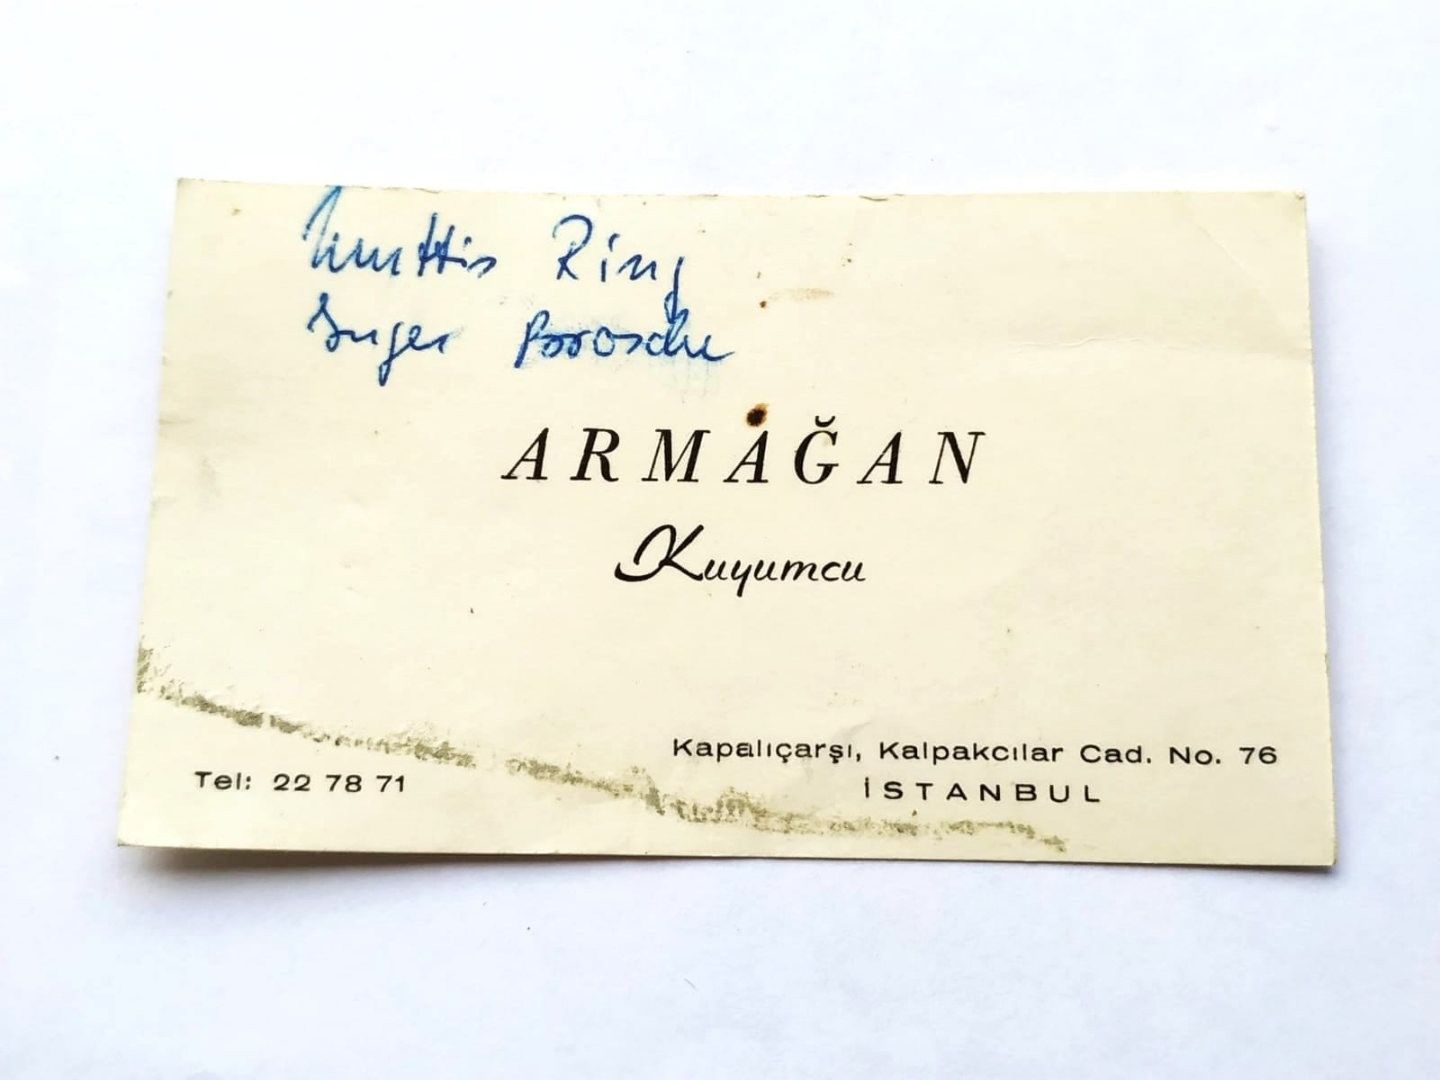 Muttis Ring
Inger Brosche
ARMAĞAN
Kuyumcu
Kapalıçarşı, Kalpakcılar Cad. No. 76
Tel: 22 78 71
İSTANBUL